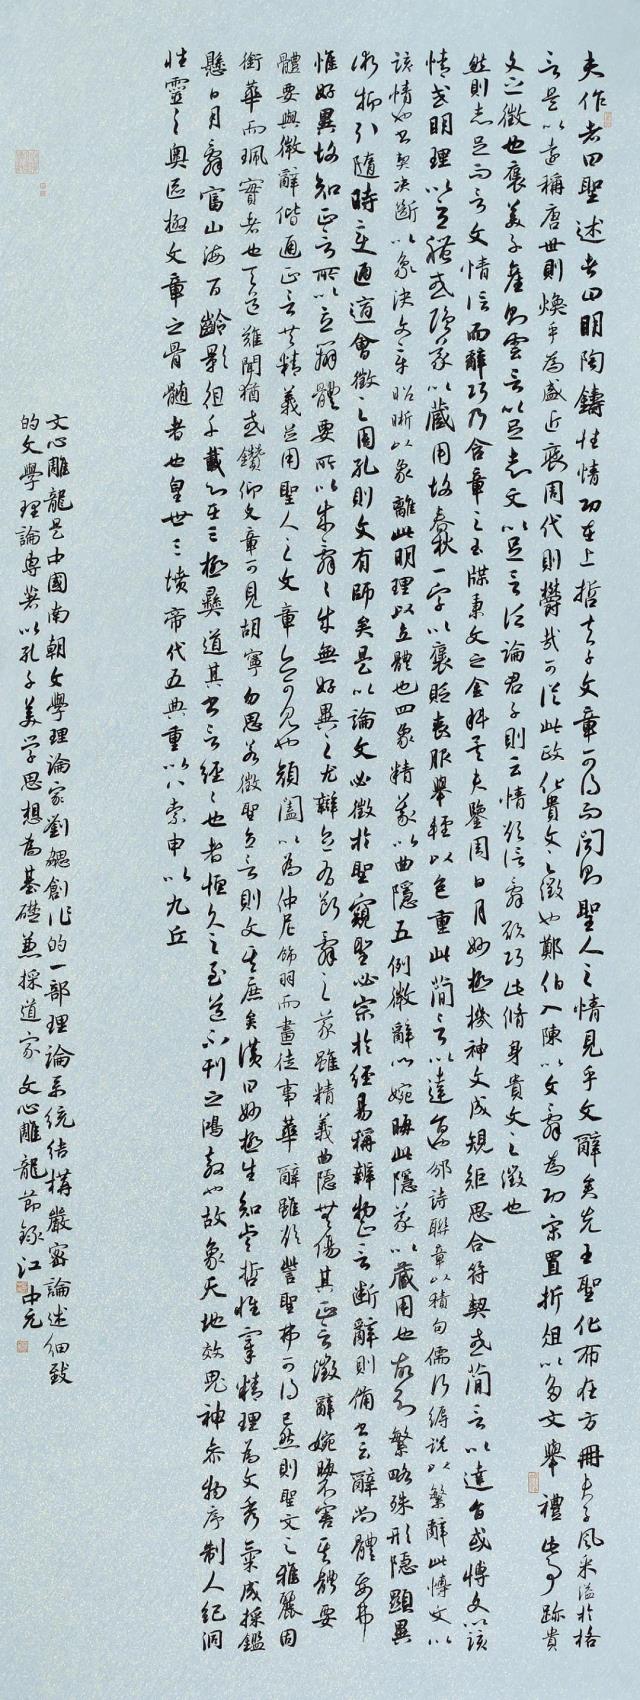 夫作者曰聖述者曰明陶鑄性情功在上哲夫子文章可得而聞則聖人之情見乎文辭矣先王聖化布在方冊夫子風采溢於格
言是以遠稱唐世則煥乎為盛近褒周代則鬱哉可從此政化貴文之徵也鄭伯入陳以文辭為功宋置折俎以多文舉禮此事跡貴
文之徵也褒美子產則雲言以足志文以足言泛論君子則云情欲信辭欲巧此脩身貴文之徵也
然則志足而言文情信而辭巧乃含章之玉牒秉文之金科矣夫鑒周日月妙極機神文成規矩思合符契或簡言以達旨或博文以該
情或明理以立體或隱義以藏用故春秋一字以褒貶喪服舉輕以包重此簡言以達旨也邠詩聯章以積句儒行縟說以繁辭此博文以
該情也書契決斷以象決文章昭晰以象離此明理以立體也四象精義以曲隱五例微辭以婉晦此隱義以藏用也故知繁略殊形隱顯異
術抑引隨時變通適會徵之周孔則文有師矣是以論文必徵於聖窺聖必宗於經易稱辨物正言斷辭則備書云辭尚體要弗
惟好異故知正言所以立辯體要所以成辭辭成無好異之尤辯立有斷辭之義雖精義曲隱無傷其正言微辭婉晦不害其體要
體要與微辭偕通正言共精義並用聖人之文章亦可見也顏闔以為仲尼飾羽而畫徒事華辭雖欲訾聖弗可得已然則聖文之雅麗固
銜華而珮實者也天道難聞猶或鑽仰文章可見胡寧勿思若徵聖立言則文其庶矣讚曰妙極生知睿哲惟宰精理為文秀氣成採鑑
懸日月辭富山海百齡影徂千載心在三極彝道其書言經經也者恒久之至道不刊之鴻教也故象天地效鬼神參物序制人紀洞
性靈之奧區極文章之骨髓者也皇世三墳帝代五典重以八索申以九丘
文心雕龍是中國南朝文學理論家劉勰創作的一部理論系統結構嚴密論述細致
的文學理論專著以孔子美學思想為基礎兼採道家文心雕龍節錄江中元